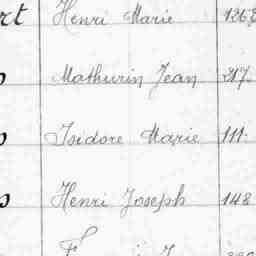 rt Henri Marie 1268
Mathurin Jean 217.
Isidore Marie 111.
Henri Joseph 148